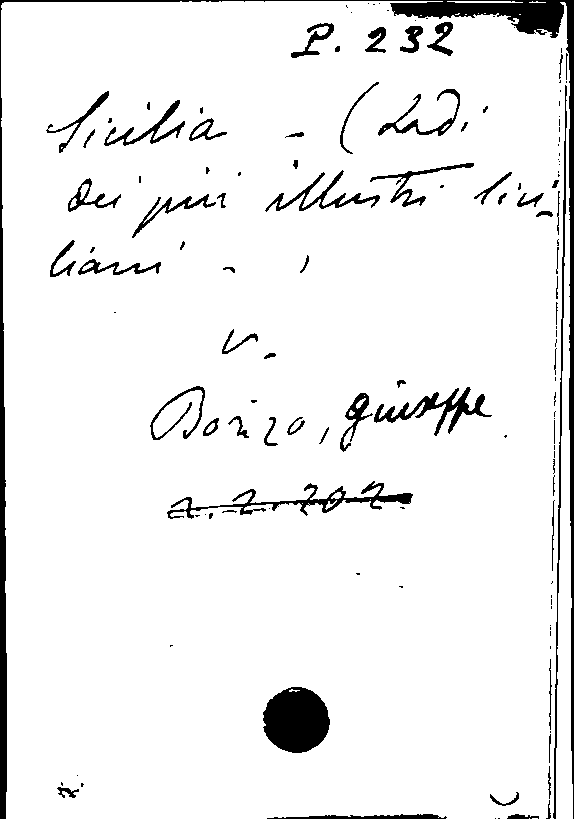 P. 232
Sicilia - (Lodi
dei più illustri Sici-
liani - )
v.
Bozzo, Giuseppe
2.2.202